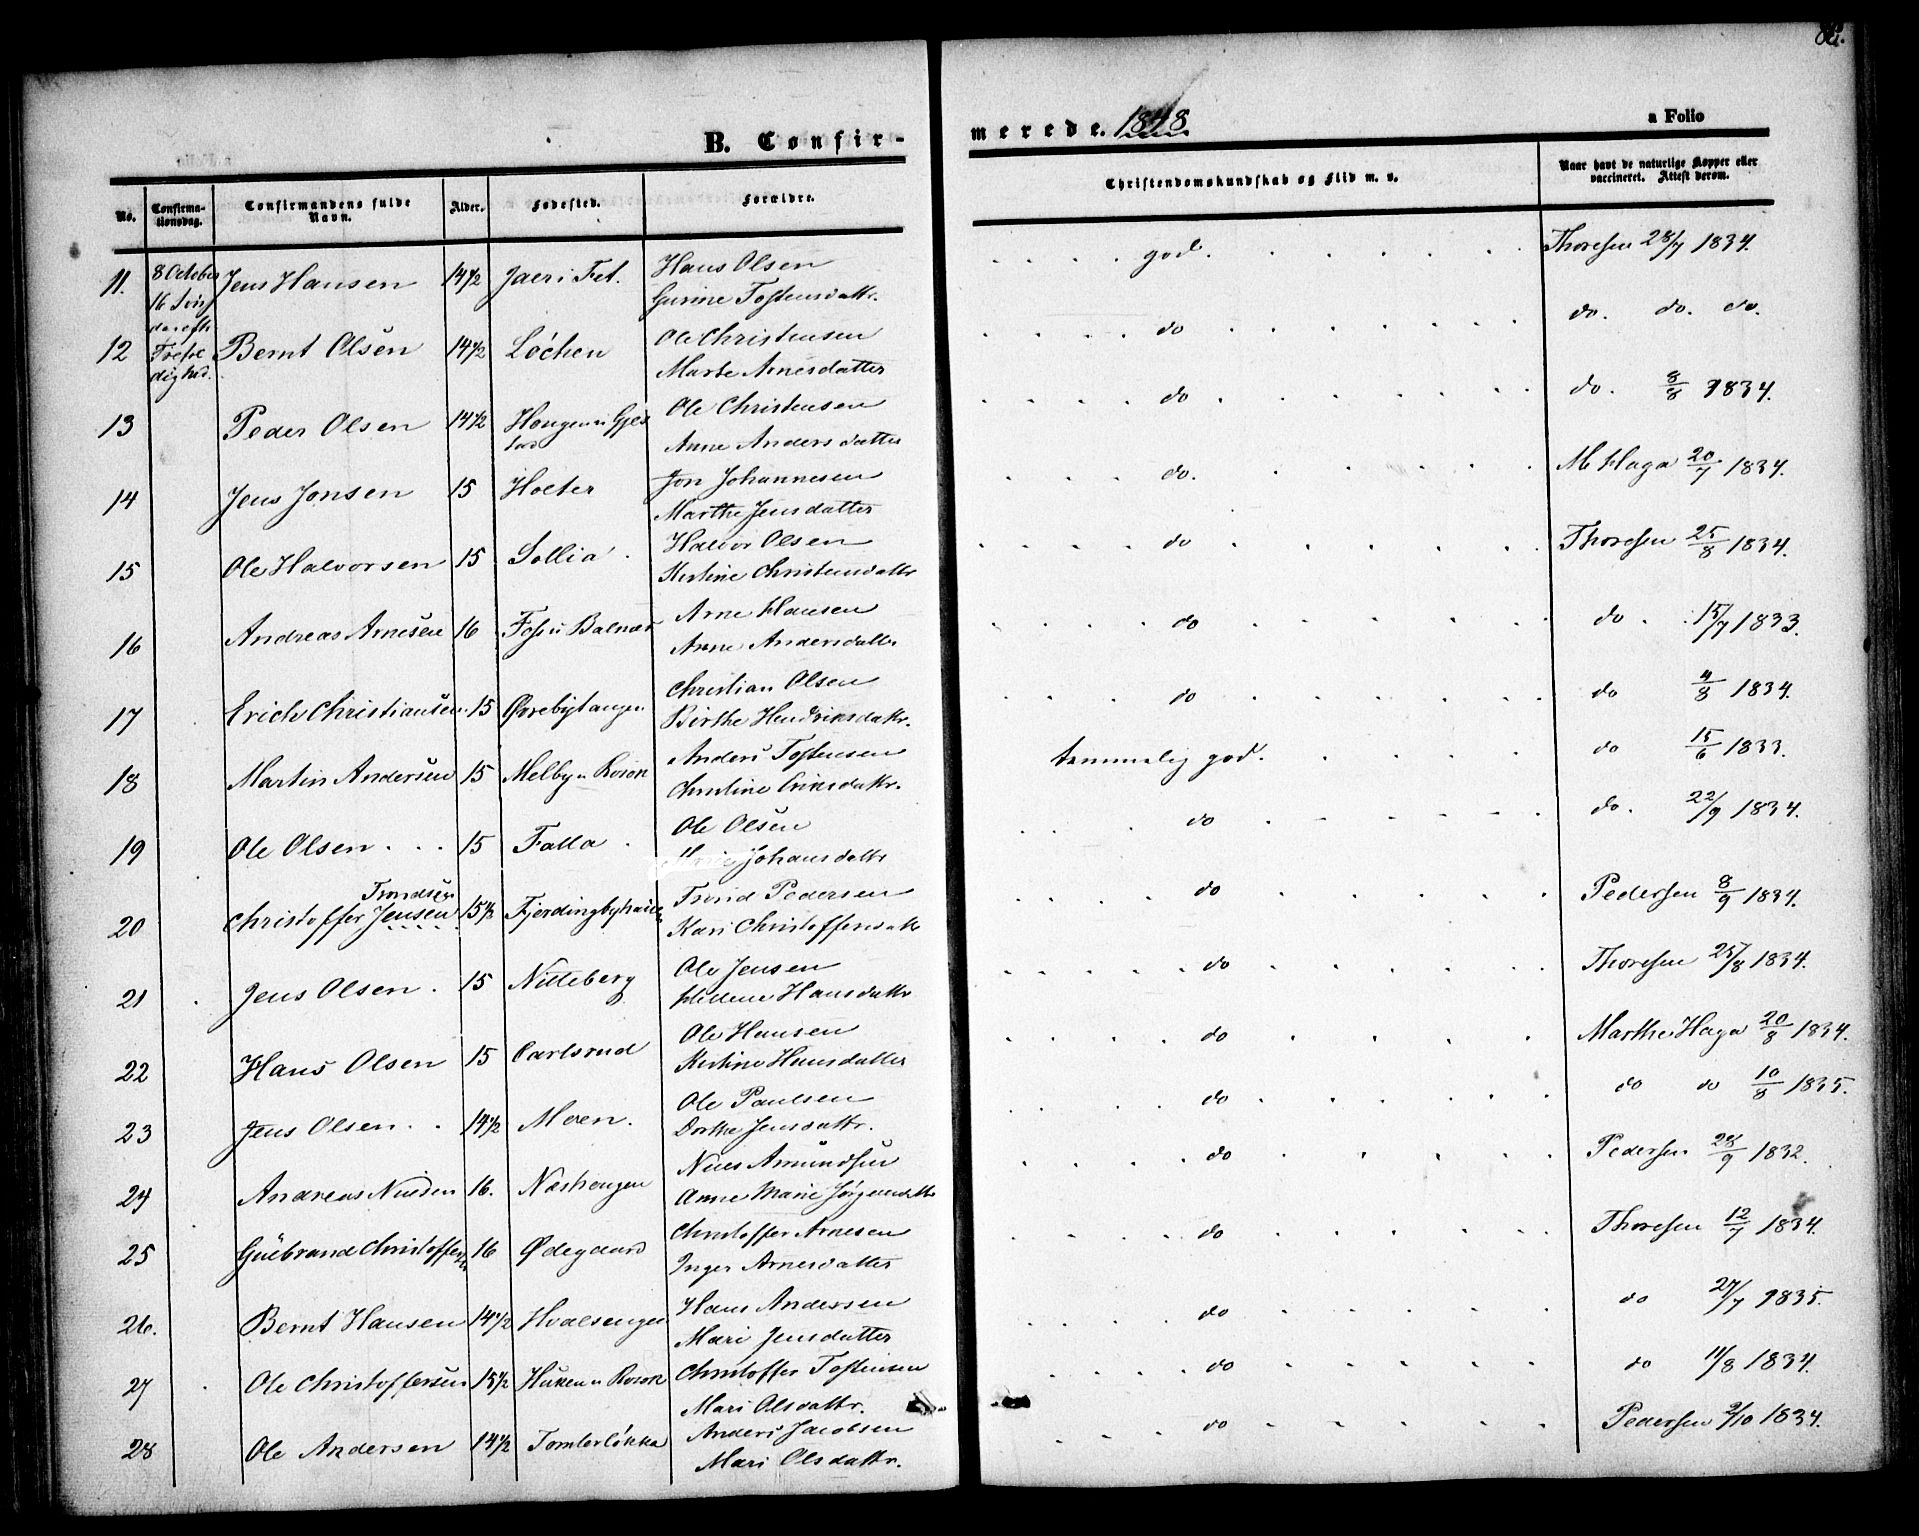 B. Confir-
merede. 1848.
a Folio
No.
Confirma-
tionsdag.
Confirmandens fulde
Navn.
Alder.
Fødested.
Forældre.
Christendomskundskab og Flid m. v.
Naar havt de naturlige Kopper eller
vaccineret. Attest derom.
8 October
16
11. Jens Hansen 14½ Jaer i Fet. Hans Olsen god. Thoresen 28/7 1834.
Gurine Tostensdattr.
12 Bernt Olsen 14½ Løchen Ole Christensen do do. do. do.
Marte Arnesdatter
13 Peder Olsen 14½ Ole Christensen do do. 8/8 1834.
Anne Andersdatter
14 Jens Jonsen 15 Holter Jon Johannesen do. M Haga 20/7 1834.
Marthe Jensdatter
15 Ole Halvorsen 15 Sollia Halvor Olsen do Thoresen 25/8 1834.
Kirstine Christensdattr
16 Andreas Arnesen 16 Arne Hansen do do 15/7 1833.
Anne Andersdattr
17 Erich Christiansen 15 Øvrebytangen Christian Olsen do do 4/8 1834.
Birthe Hendriksdattr.
18 Martin Andersen 15 Melby u Rosok Anders Tostensen temmelig god. do 15/6 1833.
Christine Eriksdattr.
19 Ole Olsen 15 Falla Ole Olsen do do. 22/9 1834.
Johansdattr
Trondsen
20 Christoffer Jensen 15½ Trond Pedersen do Pedersen 8/9 1834.
Kari Christoffersdatr
21 Jens Olsen 15 Nitteberg Ole Jensen do Thoresen 25/8 1834.
Hellene Hansdattr
22 Hans Olsen 15 Carlsrud Ole Hansen do Marthe Haga 20/8 1834.
Kirstine Hansdatter
23 Jens Olsen 14½ Moen. Ole Paulsen do do do 10/8 1835.
Dorthe Jensdattr.
24 Andreas Nielsen 16. Næshengen Niels Amundsen do Pedersen 28/9 1832.
Anne Marie Jørgensdattr
25 Gulbrand Christoffersen 16 Ødegaard Christoffer Arnesen do Thoresen 12/7 1834.
Inger Arnesdatter
26. Bernt Hansen 14½ Hvalsengen Hans Andersen do do 27/7 1835.
Mari Jensdatter
27 Ole Christoffersen 15½ Huken u Rosok Christoffer Tostensen do do 11/8 1834.
Mari Olsdattr.
28 Ole Andersen 14½ Tomterløkka Anders Jacobsen do Pedersen 2/10 1834.
Mari Olsdattr.